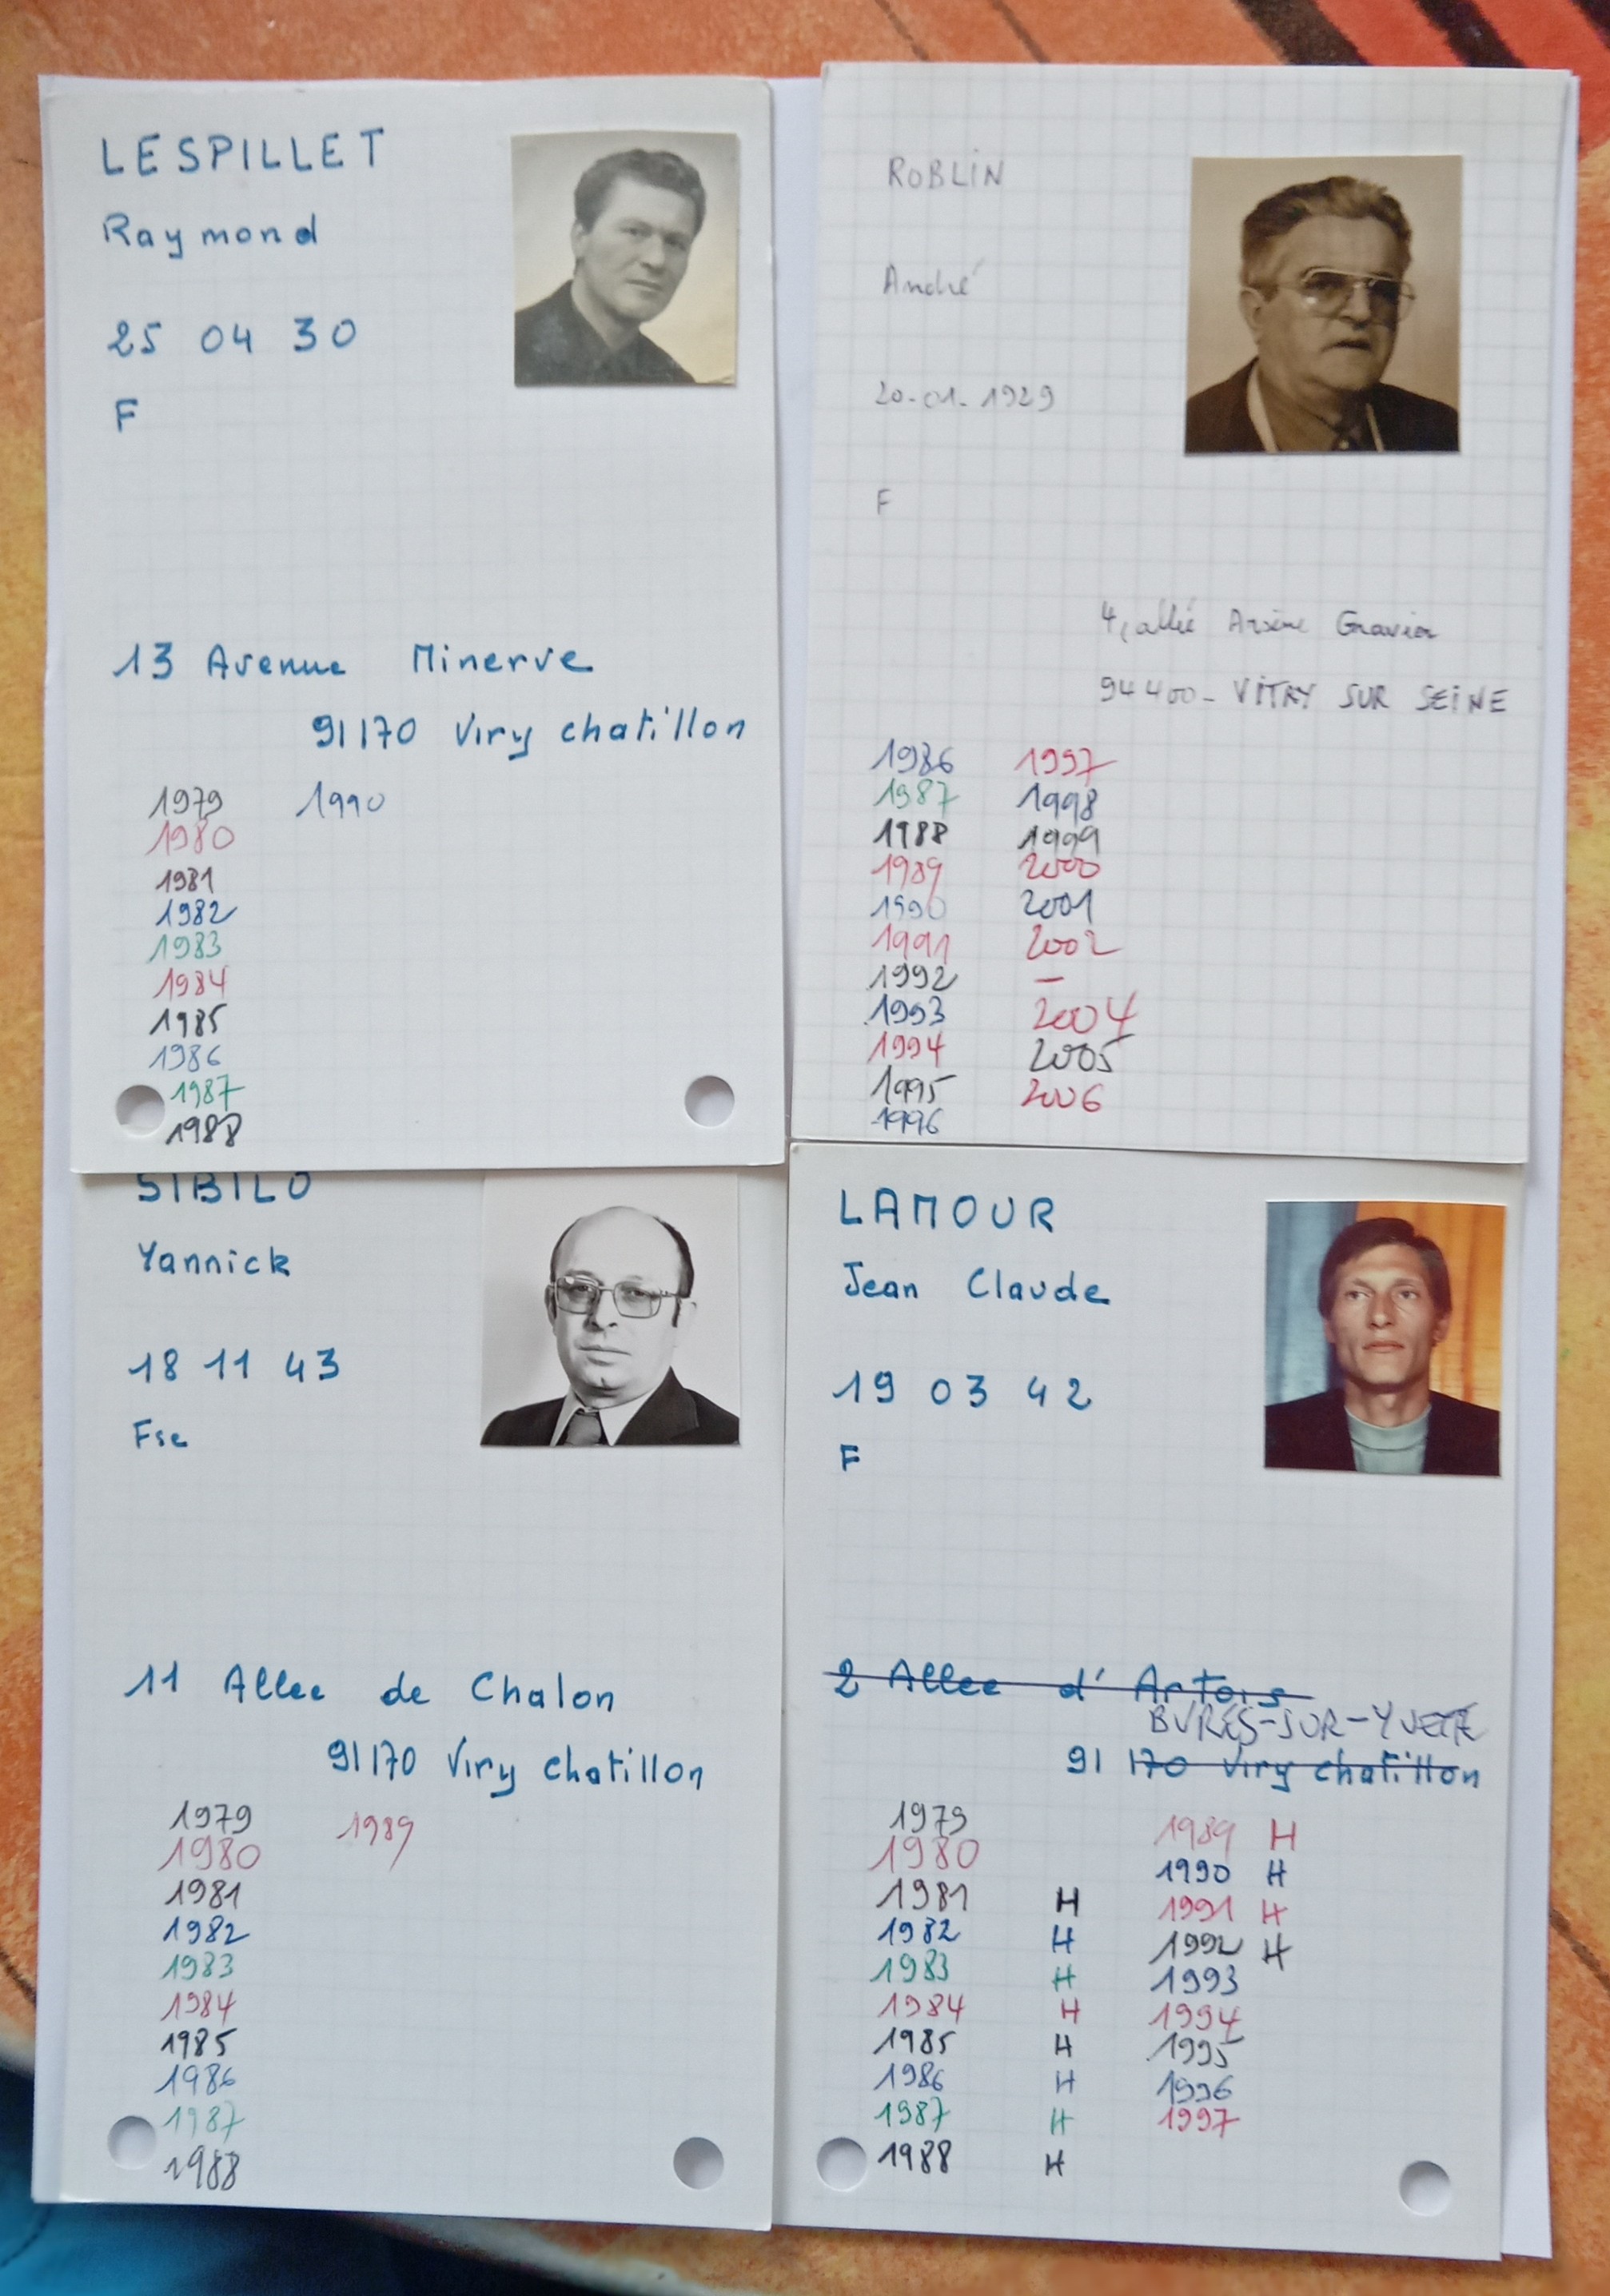 LESPILLET
Raymond
25 04 30
F
13 Avenue Minerve
91170 Viry chatillon
1979 1990
1980
1981
1982
1983
1984
1985
1986
1987
1988
ROBLIN
André
20-01-1929
F
4, allée Arsène Gravier
94400- VITRY SUR SEINE
1986 1997
1987 1998
1988 1999
1989 2000
1990 2001
1991 2002
1992 —
1993 2004
1994 2005
1995 2006
1996
SIBILO
Yannick
18 11 43
Fse
11 Allee de Chalon
91170 Viry chatillon
1979 1989
1980
1981
1982
1983
1984
1985
1986
1987
1988
LAMOUR
Jean Claude
19 03 42
F
2 Allee d'Artois
BURES-SUR-YVETTE
91 170 Viry chatillon
1979 1989 H
1980 1990 H
1981 H 1991 H
1982 H 1992 H
1983 H 1993
1984 H 1994
1985 H 1995
1986 H 1996
1987 H 1997
1988 H